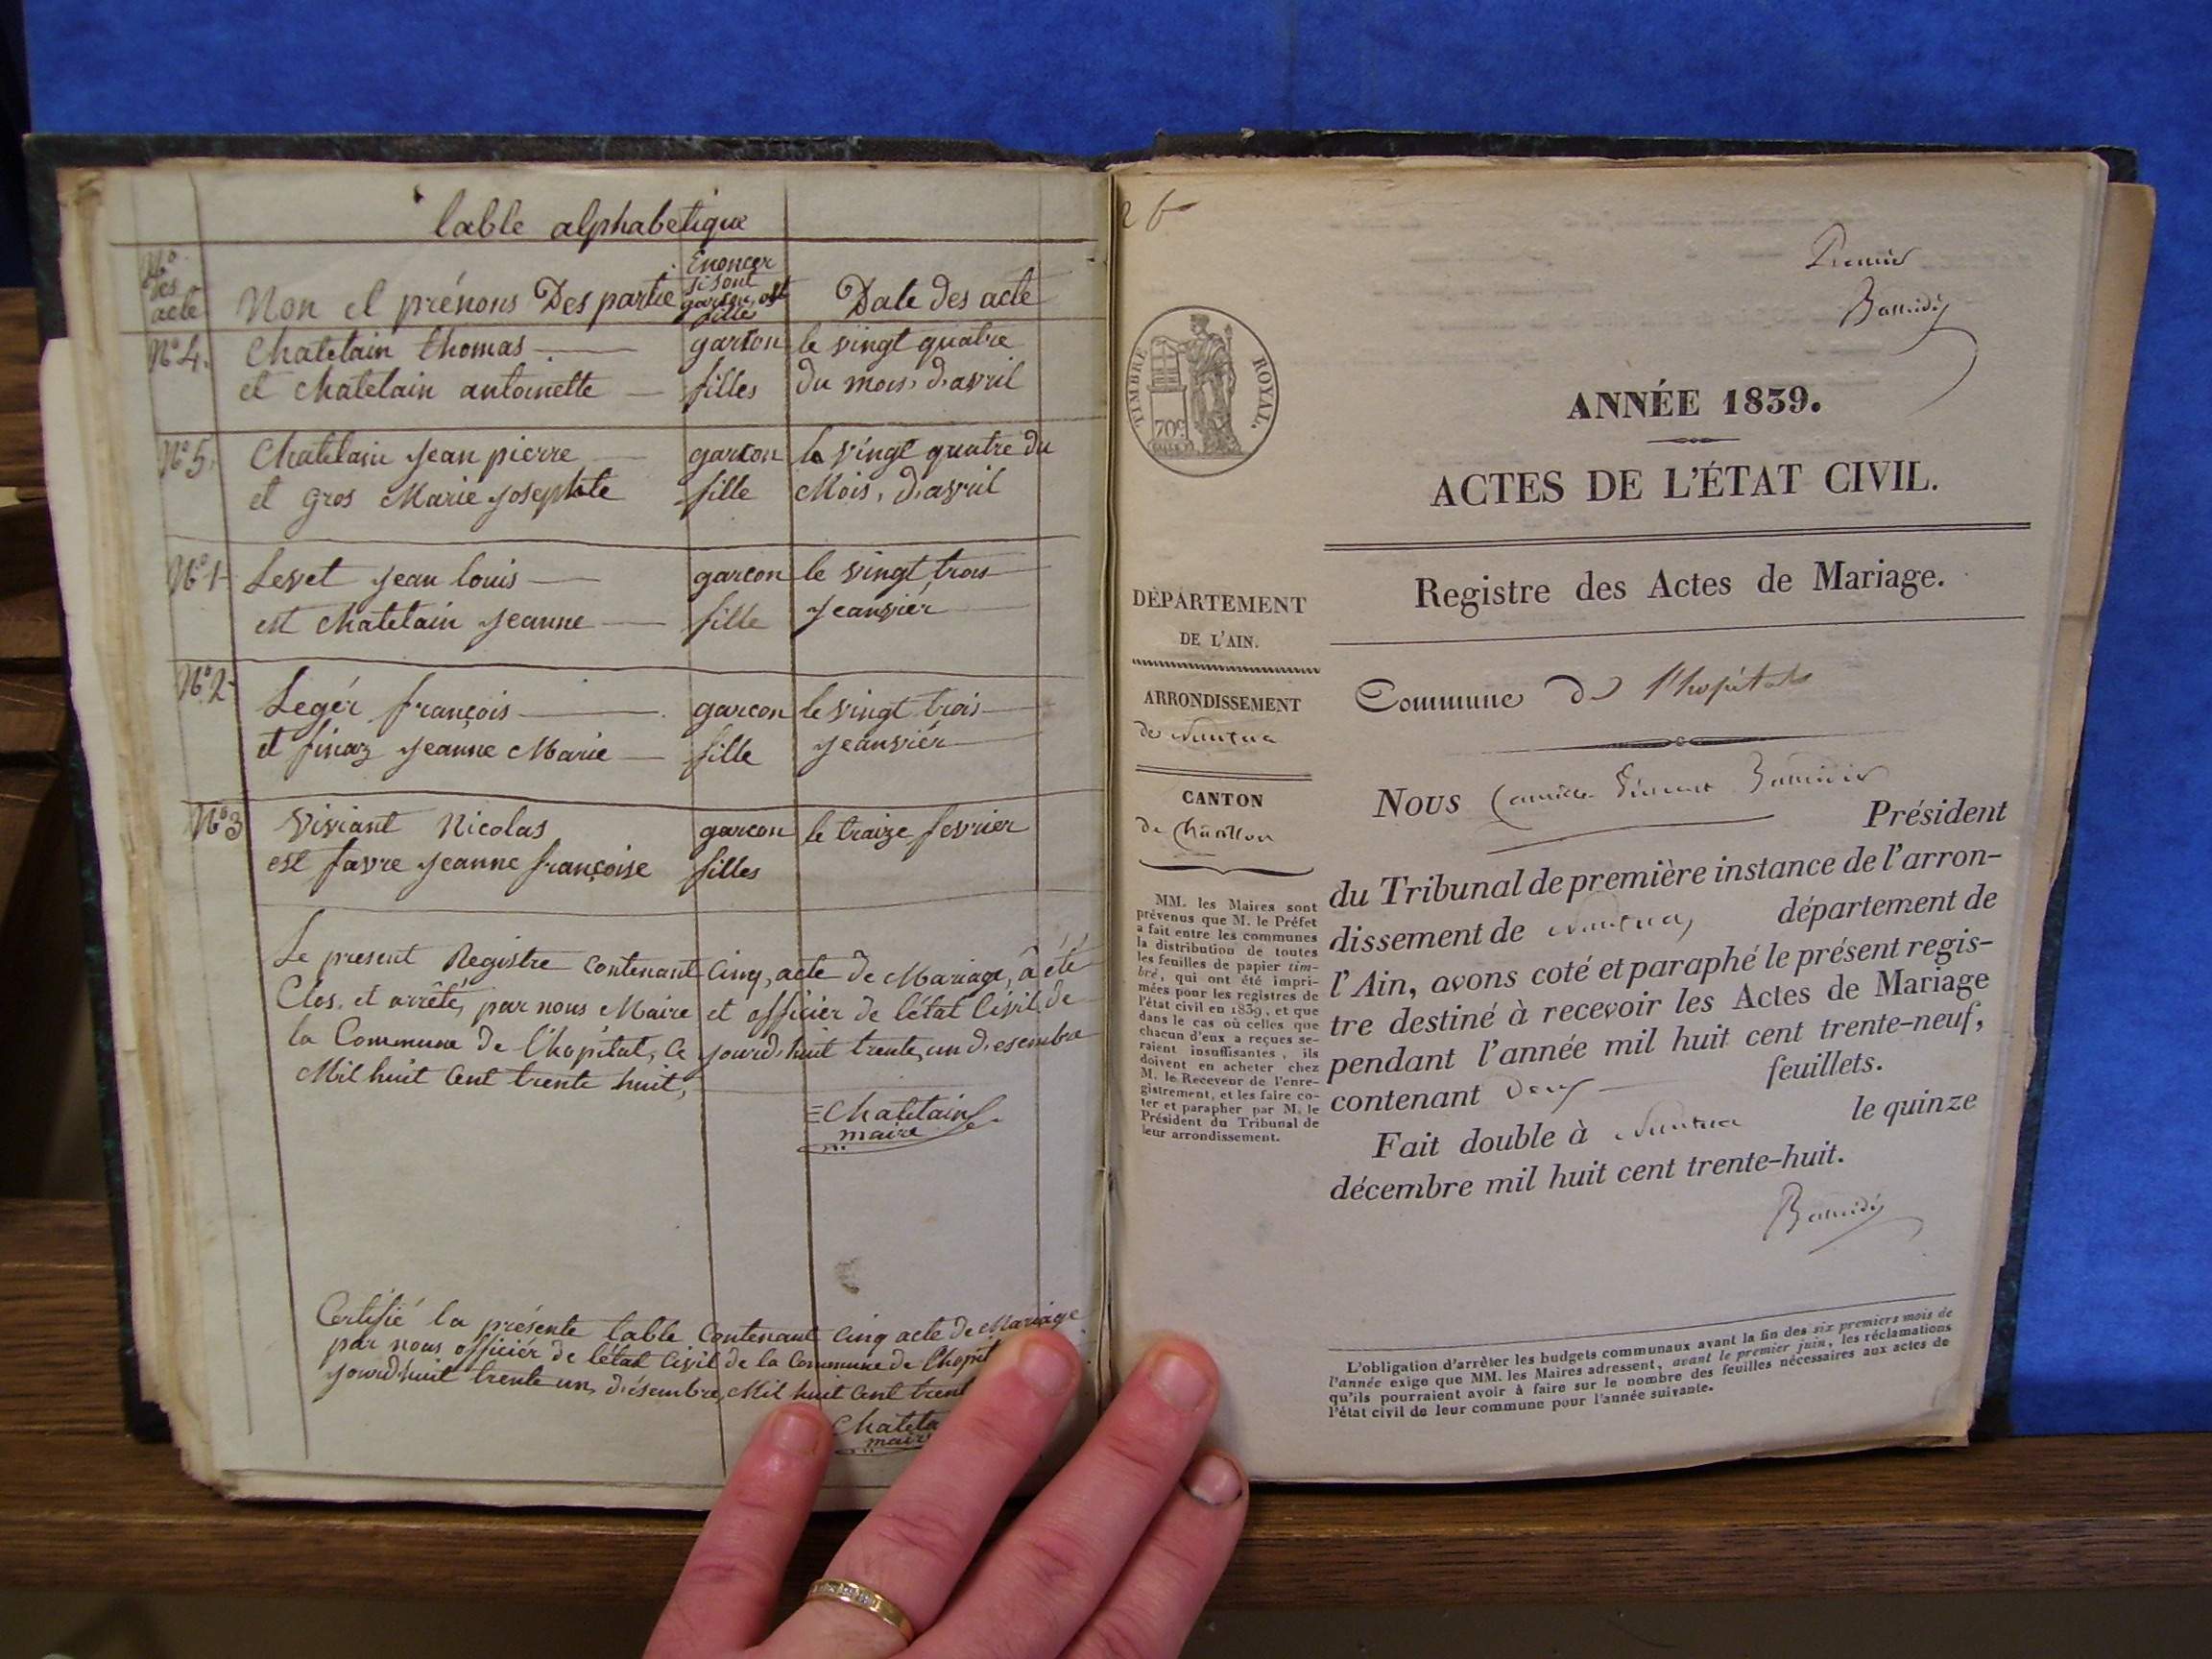 table alphabetique
No des acte
Non et prénons Des partie
Enoncer si sont garson, est fille
Date des acte
No 4.
Chatelain thomas
garson
le vingt quatre
et chatelain antoinette
filles
du mois, d'avril
No 5.
Chatelain jean pierre
garcon
le vingt quatre du
et gros Marie josephte
fille
Mois, d'avril
No 1
Levet jean louis
garcon
le vingt trois
est chatelain jeanne
fille
jeanvier
No 2
Legér françois
garcon
le vingt trois
et finaz jeanne Marie
fille
jeanviér
No 3
Viviant Nicolas
garcon
le traize fevrier
est favre jeanne françoise
filles
Le present Registre contenant cinq, acte de Mariage, a été
Clos, et arrêté, par nous Maire et officier de l'état Civil de
la Commune de l'hopitat, ce jourd'huit trente, un d'esembre
Mil huit cent trente huit,
Chatelain
maire
Certifié la présente table Contenant cinq acte de Mariage
par nous officiér de l'état Civil de la Commune de l'hopit
jourdhuit trente un, d'ésembre, Mil huit cent trent
Chatela
mair
Premier
TIMBRE ROYAL.
70c
ANNÉE 1839.
ACTES DE L'ÉTAT CIVIL.
Registre des Actes de Mariage.
DÉPARTEMENT
DE L'AIN.
ARRONDISSEMENT
de Nantua
CANTON
de Châtillon
MM. les Maires sont
prévenus que M. le Préfet
a fait entre les communes
la distribution de toutes
les feuilles de papier tim-
bré, qui ont été impri-
mées pour les registres de
l'état civil en 1839, et que
dans le cas où celles que
chacun d'eux a reçues se-
raient insuffisantes, ils
doivent en acheter chez
M. le Receveur de l'enre-
gistrement, et les faire co-
ter et parapher par M. le
Président du Tribunal de
leur arrondissement.
Commune de l'hopital
Nous Camille Vincent
Président
du Tribunal de première instance de l'arron-
dissement de Nantua, département de
l'Ain, avons coté et paraphé le présent regis-
tre destiné à recevoir les Actes de Mariage
pendant l'année mil huit cent trente-neuf,
contenant deux feuillets.
Fait double à Nantua le quinze
décembre mil huit cent trente-huit.
L'obligation d'arrêter les budgets communaux avant la fin des six premiers mois de
l'année exige que MM. les Maires adressent, avant le premier juin, les réclamations
qu'ils pourraient avoir à faire sur le nombre des feuilles nécessaires aux actes de
l'état civil de leur commune pour l'année suivante.